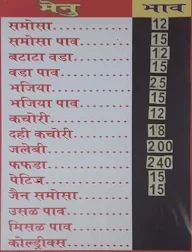 मेनु भाव
समोसा 12
समोसा पाव 15
बटाटा वडा 12
वडा पाव 15
भजिया 25
भजिया पाव 15
कचोरी 12
दही कचोरी 18
जलेबी 200
फफडा 240
पेटिज 15
जैन समोसा 15
उसळ पाव
मिसळ पाव
कोल्ड्रींक्स